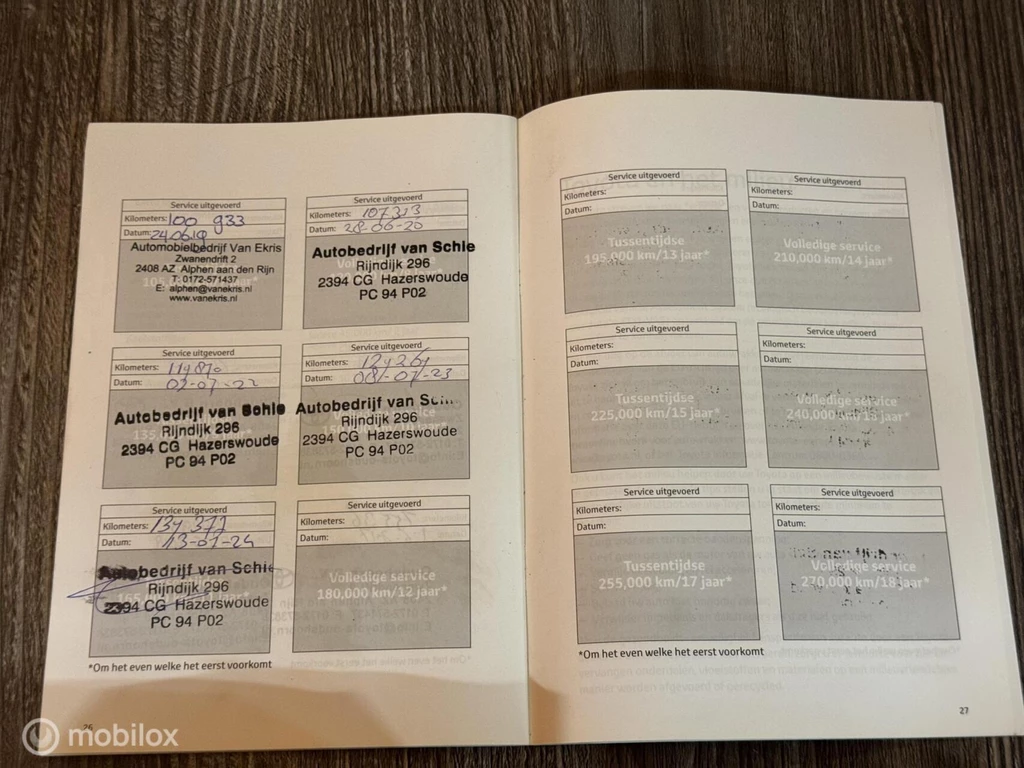 Service uitgevoerd
Kilometers: 100 933
Datum: 24.06.19
Automobielbedrijf Van Ekris
Zwanendrift 2
2408 AZ Alphen aan den Rijn
T: 0172-571437
E: alphen@vanekris.nl
www.vanekris.nl
Service uitgevoerd
Kilometers: 107313
Datum: 28-06-20
Autobedrijf van Schie
Rijndijk 296
2394 CG Hazerswoude
PC 94 P02
Service uitgevoerd
Kilometers:
Datum: 02-07-22
Autobedrijf van Schie
Rijndijk 296
2394 CG Hazerswoude
PC 94 P02
Service uitgevoerd
Kilometers:
Datum: 08-07-23
Autobedrijf van Schie
Rijndijk 296
2394 CG Hazerswoude
PC 94 P02
Service uitgevoerd
Kilometers: 134 377
Datum: 13-01-24
Autobedrijf van Schie
Rijndijk 296
2394 CG Hazerswoude
PC 94 P02
Service uitgevoerd
Kilometers:
Datum:
Volledige service
180,000 km/12 jaar*
*Om het even welke het eerst voorkomt
26
Service uitgevoerd
Kilometers:
Datum:
Tussentijdse
195,000 km/13 jaar*
Service uitgevoerd
Kilometers:
Datum:
Volledige service
210,000 km/14 jaar*
Service uitgevoerd
Kilometers:
Datum:
Tussentijdse
225,000 km/15 jaar*
Service uitgevoerd
Kilometers:
Datum:
Volledige service
240,000 km/16 jaar*
Service uitgevoerd
Kilometers:
Datum:
Tussentijdse
255,000 km/17 jaar*
Service uitgevoerd
Kilometers:
Datum:
Volledige service
270,000 km/18 jaar*
*Om het even welke het eerst voorkomt
27
mobilox